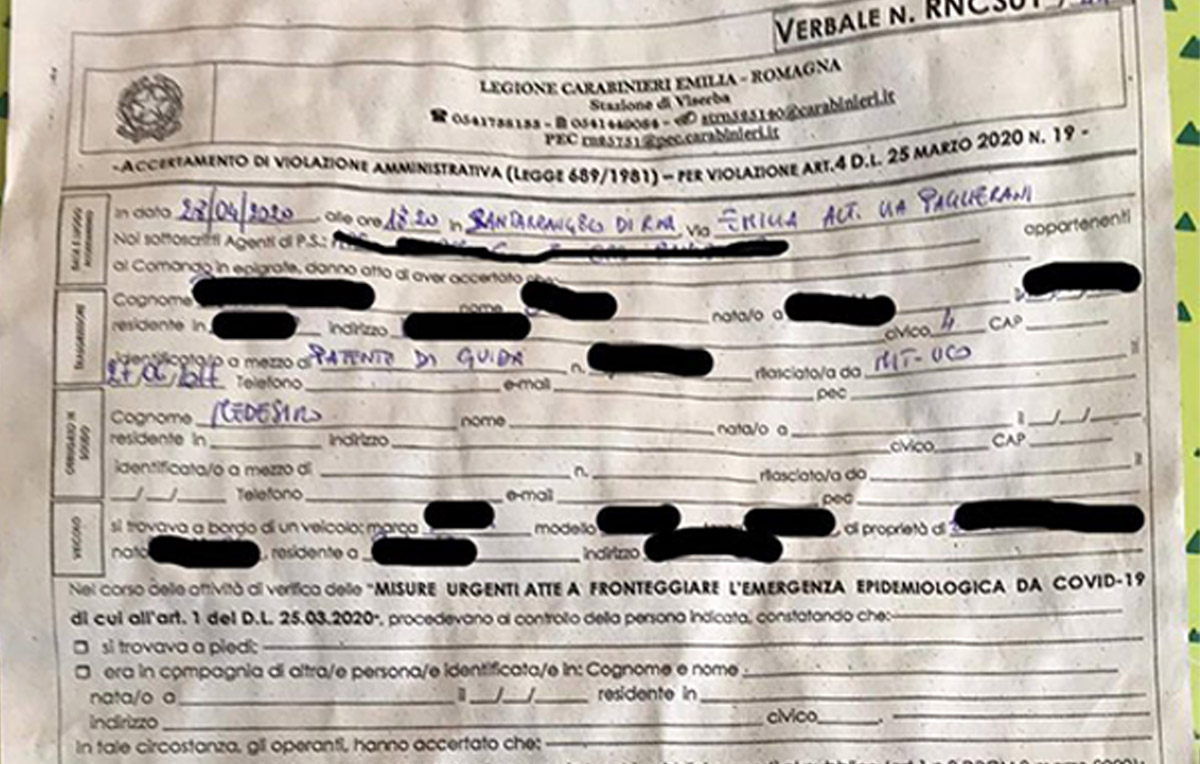 VERBALE N. RNCS01
LEGIONE CARABINIERI EMILIA - ROMAGNA
Stazione di Viserba
PEC rn25751@pec.carabinieri.it
-ACCERTAMENTO DI VIOLAZIONE AMMINISTRATIVA (LEGGE 689/1981) – PER VIOLAZIONE ART.4 D.L. 25 MARZO 2020 N. 19 -
In data /04/2020 alle ore 18 20 in SANTARCANGELO DI RNA Via EMILIA ALT. VIA PAGLIERANI
Noi sottoscritti Agenti di P.S.: appartenenti
al Comando in epigrafe, danno atto di aver accertato che:
TRASGRESSORE
Cognome nome nata/o a
residente in indirizzo civico 4 CAP
Identificata/o a mezzo di PATENTE DI GUIDA n. rilasciato/a da MT-UCO il
Telefono e-mail pec
OBBLIGATO IN SOLIDO
Cognome MEDESIMO nome nata/o a il _/_/_
residente in indirizzo civico CAP
identificata/o a mezzo di n. rilasciato/a da il
_/_/_ Telefono e-mail pec
VEICOLO
si trovava a bordo di un veicolo: marca modello di proprietà di
nato , residente a indirizzo
Nel corso delle attività di verifica delle “MISURE URGENTI ATTE A FRONTEGGIARE L'EMERGENZA EPIDEMIOLOGICA DA COVID-19
di cui all'art. 1 del D.L. 25.03.2020", procedevano al controllo della persona indicata, constatando che:
☐ si trovava a piedi:
☐ era in compagnia di altra/e persona/e identificata/e in: Cognome e nome
nata/o a il _/_/_ residente in
indirizzo civico
In tale circostanza, gli operanti, hanno accertato che: